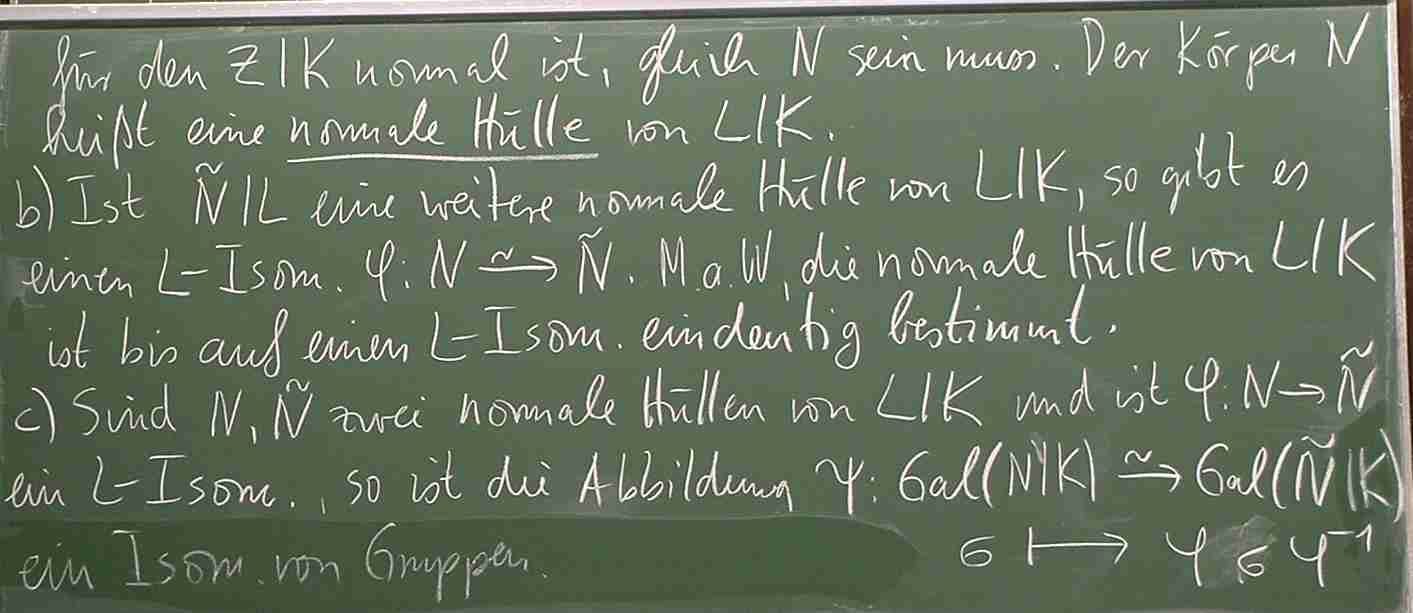 für den Z|K normal ist, gleich N sein muss. Der Körper N
heißt eine normale Hülle von L|K.
b) Ist Ñ|L eine weitere normale Hülle von L|K, so gibt es
einen L-Isom. φ: N ⥲ Ñ. M.a.W, die normale Hülle von L|K
ist bis auf einen L-Isom. eindeutig bestimmt.
c) Sind N, Ñ zwei normale Hüllen von L|K und ist φ: N → Ñ
ein L-Isom., so ist die Abbildung ψ: Gal(N|K) ⥲ Gal(Ñ|K)
σ ⟼ φ σ φ⁻¹
ein Isom. von Gruppen.